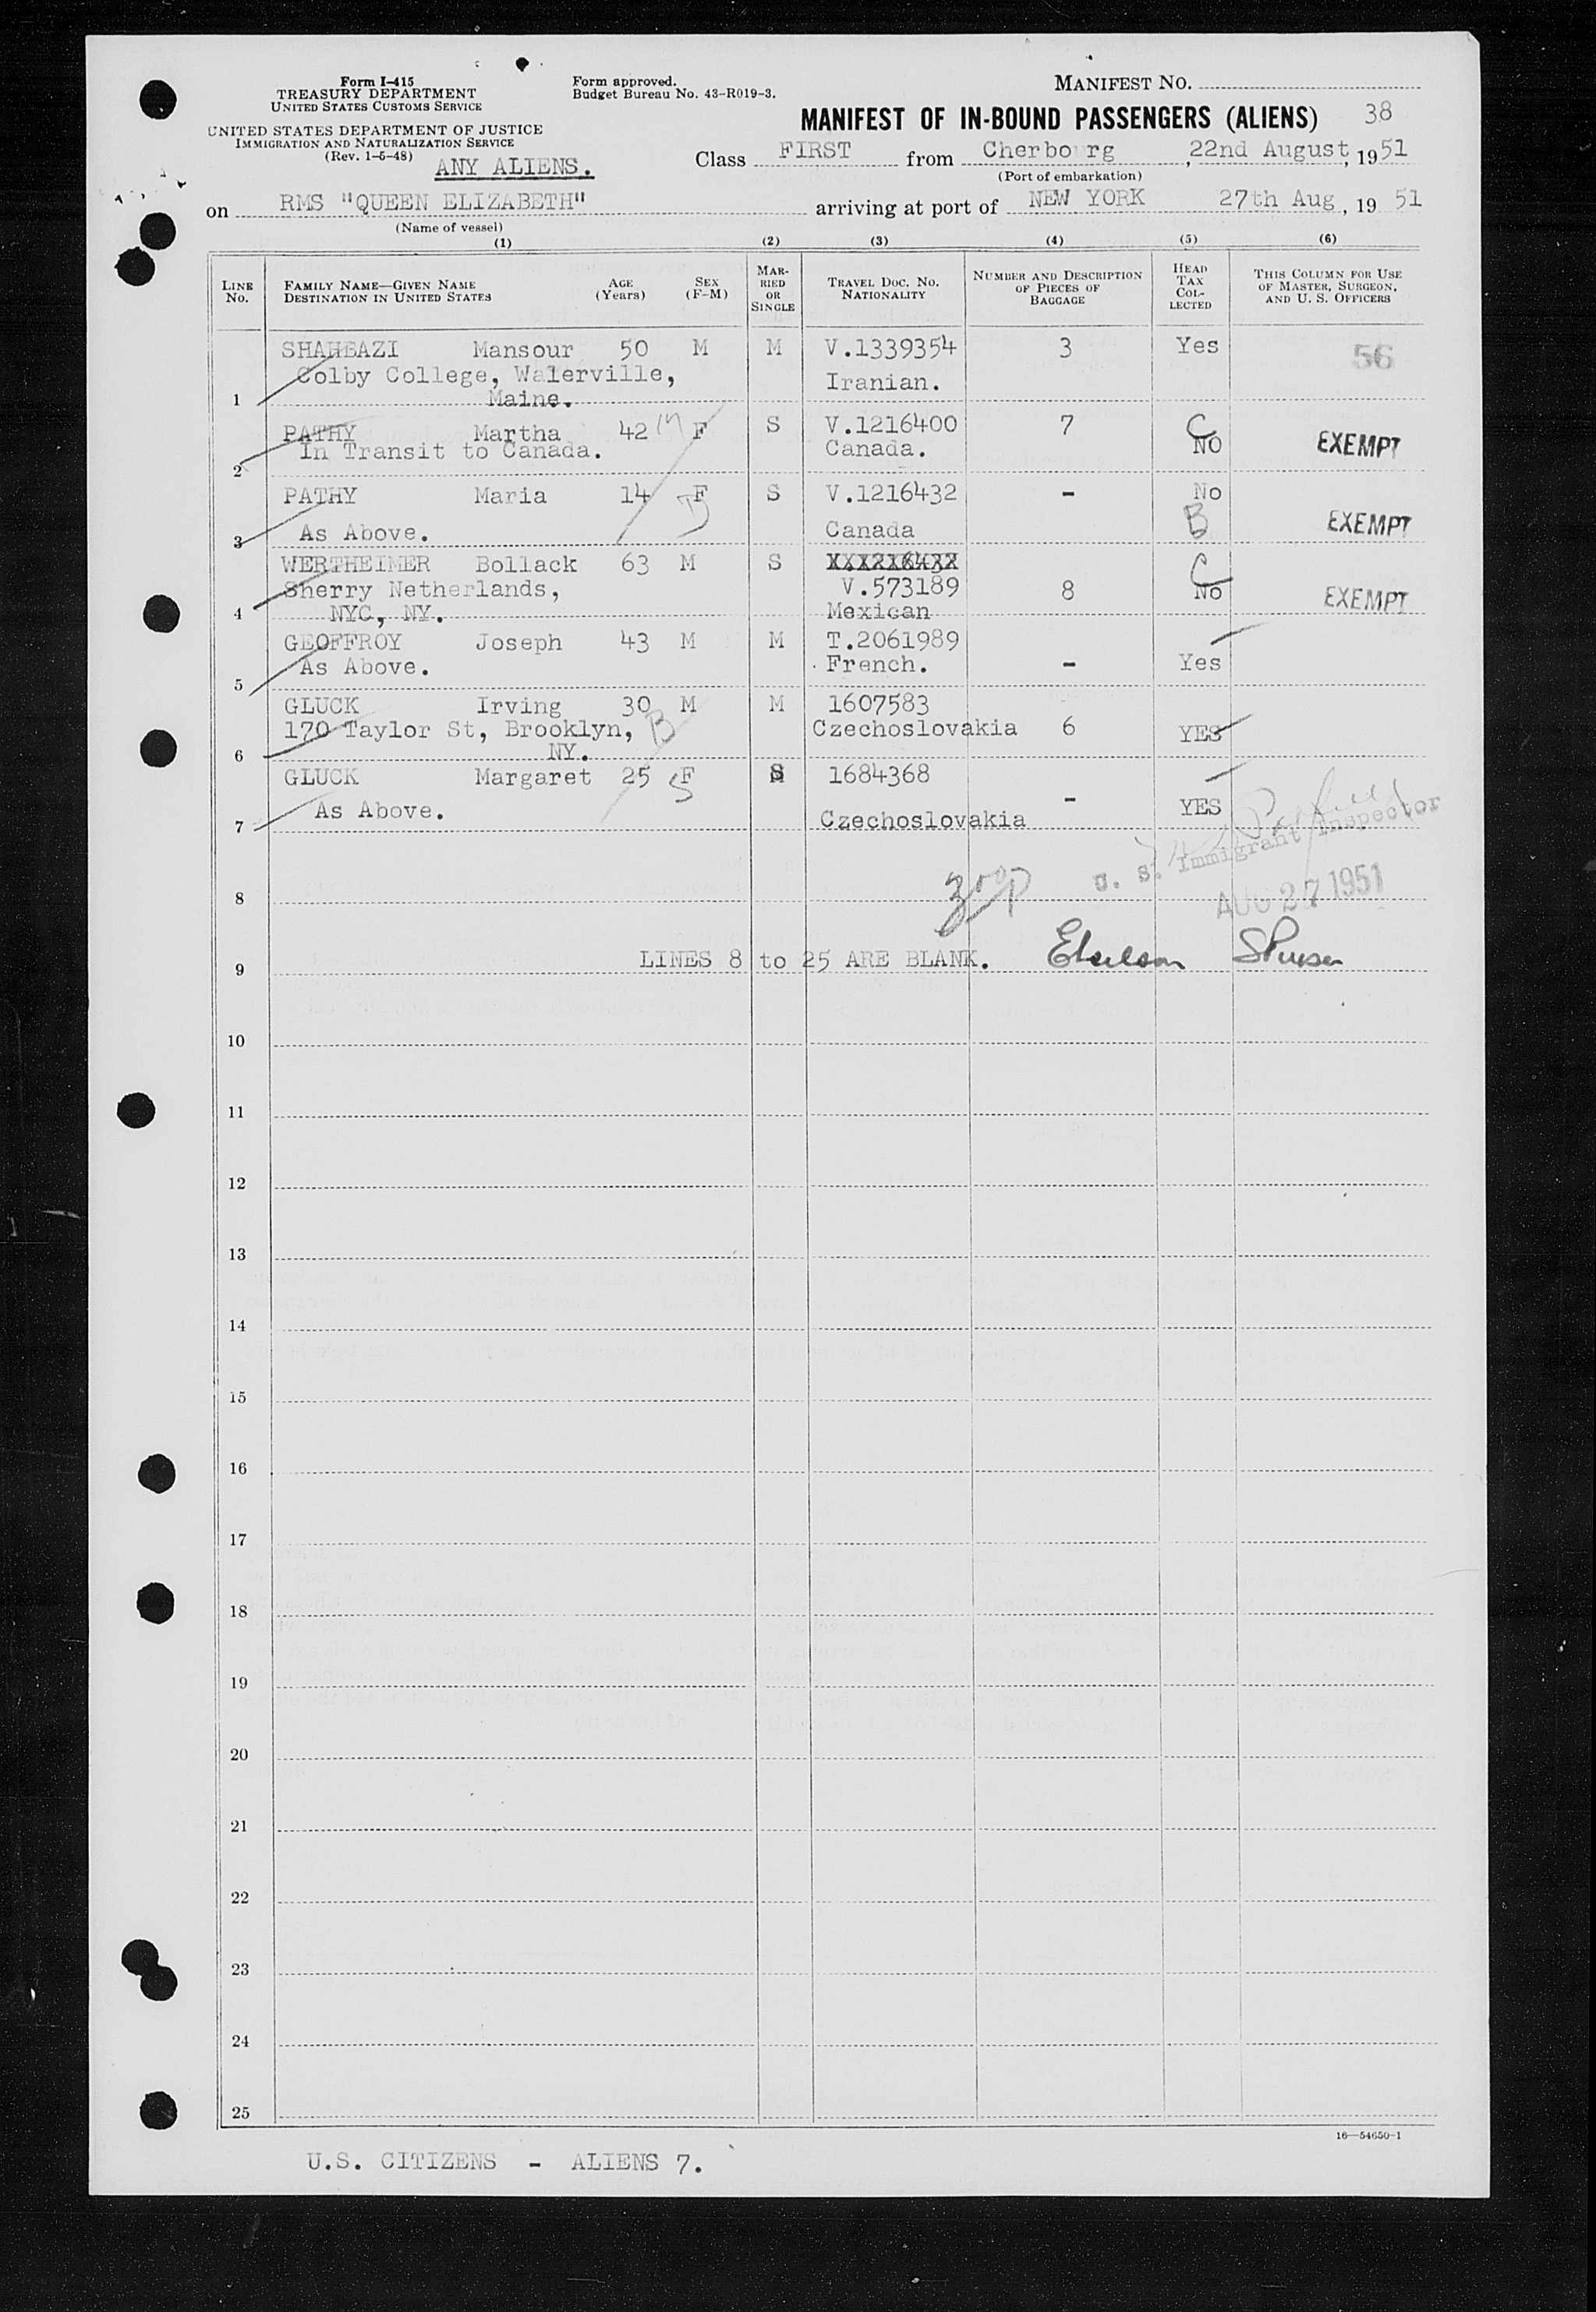 Form I-415
TREASURY DEPARTMENT
UNITED STATES CUSTOMS SERVICE
UNITED STATES DEPARTMENT OF JUSTICE
IMMIGRATION AND NATURALIZATION SERVICE
(Rev. 1-5-48)
ANY ALIENS.
Form approved.
Budget Bureau No. 43-R019-3.
MANIFEST NO.
MANIFEST OF IN-BOUND PASSENGERS (ALIENS) 38
Class FIRST from Cherbo rg, 22nd August, 1951
(Port of embarkation)
on RMS "QUEEN ELIZABETH" arriving at port of NEW YORK 27th Aug, 19 51
(Name of vessel)
(1) (2) (3) (4) (5) (6)
LINE No.
FAMILY NAME—GIVEN NAME
DESTINATION IN UNITED STATES
AGE (Years)
SEX (F-M)
MAR-RIED OR SINGLE
TRAVEL DOC. NO. NATIONALITY
NUMBER AND DESCRIPTION OF PIECES OF BAGGAGE
HEAD TAX COL-LECTED
THIS COLUMN FOR USE OF MASTER, SURGEON, AND U. S. OFFICERS
SHAHBAZI Mansour 50 M M V.1339354 3 Yes 56
Colby College, Walerville, Iranian.
1 Maine.
PATHY Martha 42 F S V.1216400 7 C NO EXEMPT
2 In Transit to Canada. Canada.
PATHY Maria 14 F S V.1216432 - No
3 As Above. Canada B EXEMPT
WERTHEIMER Bollack 63 M S XXX216432 C
Sherry Netherlands, V.573189 8 No EXEMPT
4 NYC, NY. Mexican
GEOFFROY Joseph 43 M M T.2061989
As Above. French. - Yes
5
GLUCK Irving 30 M M 1607583
170 Taylor St, Brooklyn, B Czechoslovakia 6 YES
6 NY.
GLUCK Margaret 25 F S 1684368
7 As Above. Czechoslovakia - YES
U. S. Immigrant Inspector
8 AUG 27 1951
9 LINES 8 to 25 ARE BLANK.
10
11
12
13
14
15
16
17
18
19
20
21
22
23
24
25
16—54650-1
U.S. CITIZENS - ALIENS 7.